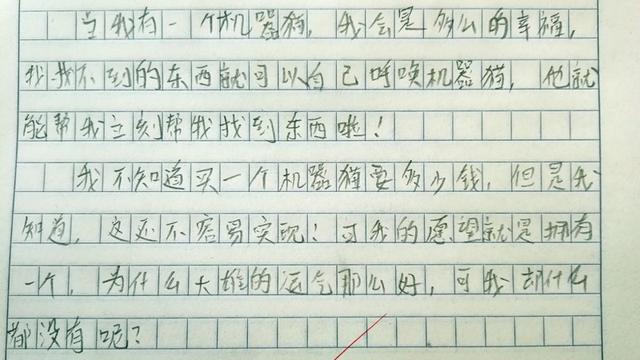 当我有一个机器猫，我会是多么的幸福，
我找不到的东西就可以自己呼唤机器猫，他就
能帮我立刻帮我找到东西啦！
我不知道买一个机器猫要多少钱，但是我
知道，这还不容易实现！可我的愿望就是拥有
一个，为什么大雄的运气那么好，可我却什么
都没有呢？